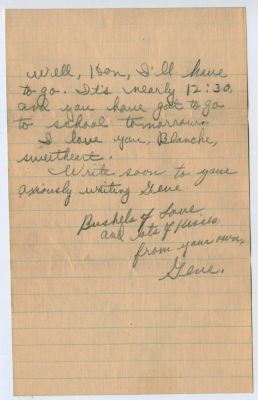 Well, Hon, I'll have
to go. It's nearly 12:30,
and you have got to go
to school tomorrow.
I love you, Blanche,
sweetheart.
Write soon to your
axiously waiting Gene
Bushels of Love
and lots of Kisses
from your own,
Gene.